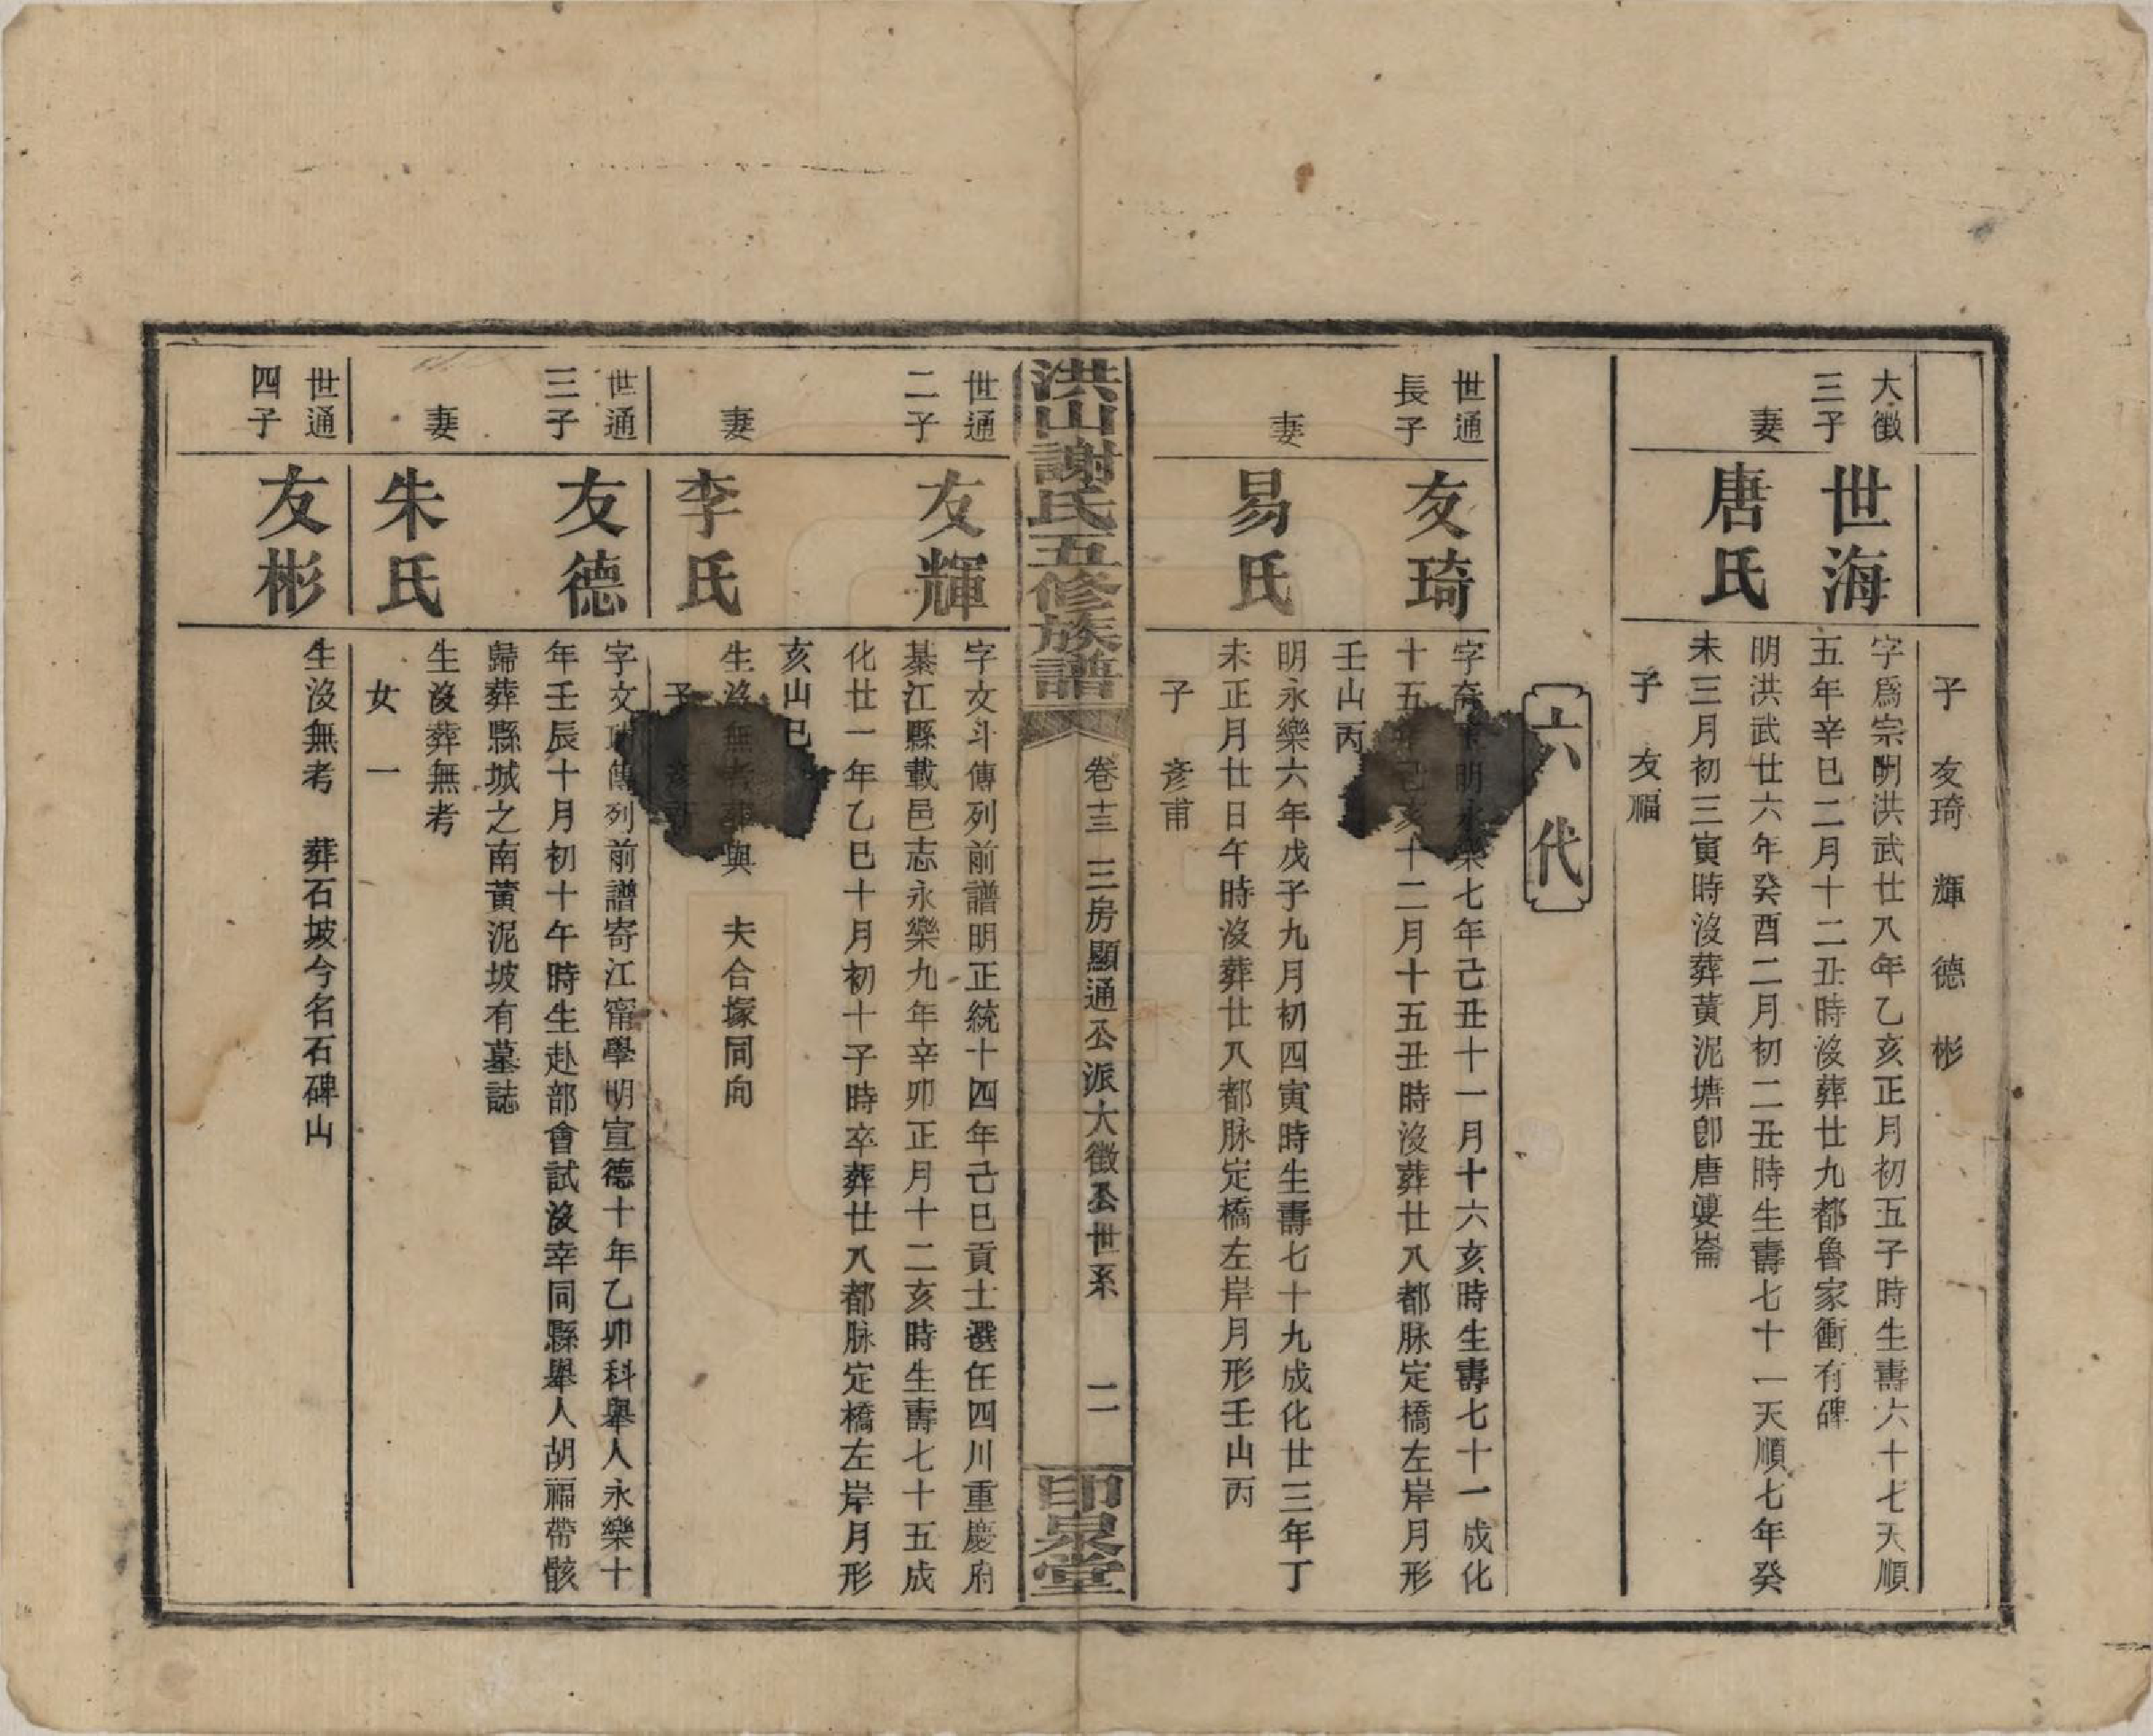 子 友琦 輝 德 彬
大徵三子 世海
字爲宗明洪武廿八年乙亥正月初五子時生壽六十七天順
五年辛巳二月十二丑時沒葬廿九都魯家衝有碑
妻 唐氏
明洪武廿六年癸酉二月初二丑時生壽七十一天順七年癸
未三月初三寅時沒葬黃泥塘卽唐婆崙
子 友福
六代
世通長子 友琦
字奇 明永樂七年己丑十一月十六亥時生壽七十一成化
十五年己亥十二月十五丑時沒葬廿八都脉定橋左岸月形
壬山丙
妻 易氏
明永樂六年戊子九月初四寅時生壽七十九成化廿三年丁
未正月廿日午時沒葬廿八都脉定橋左岸月形壬山丙
子 彥甫
洪山謝氏五修族譜
卷十三 三房顯通公派大徵公世系 二
印泉堂
世通二子 友輝
字文斗傳列前譜明正統十四年己巳貢士選任四川重慶府
綦江縣載邑志永樂九年辛卯正月十二亥時生壽七十五成
化廿一年乙巳十月初十子時卒葬廿八都脉定橋左岸月形
亥山巳
妻 李氏
生沒無考葬與 夫合塚同向
子 彥
世通三子 友德
字文 傳列前譜寄江甯學明宣德十年乙卯科舉人永樂十
年壬辰十月初十午時生赴部會試沒幸同縣舉人胡福帶骸
歸葬縣城之南黃泥坡有墓誌
妻 朱氏
生沒葬無考
女 一
世通四子 友彬
生沒無考 葬石坡今名石碑山